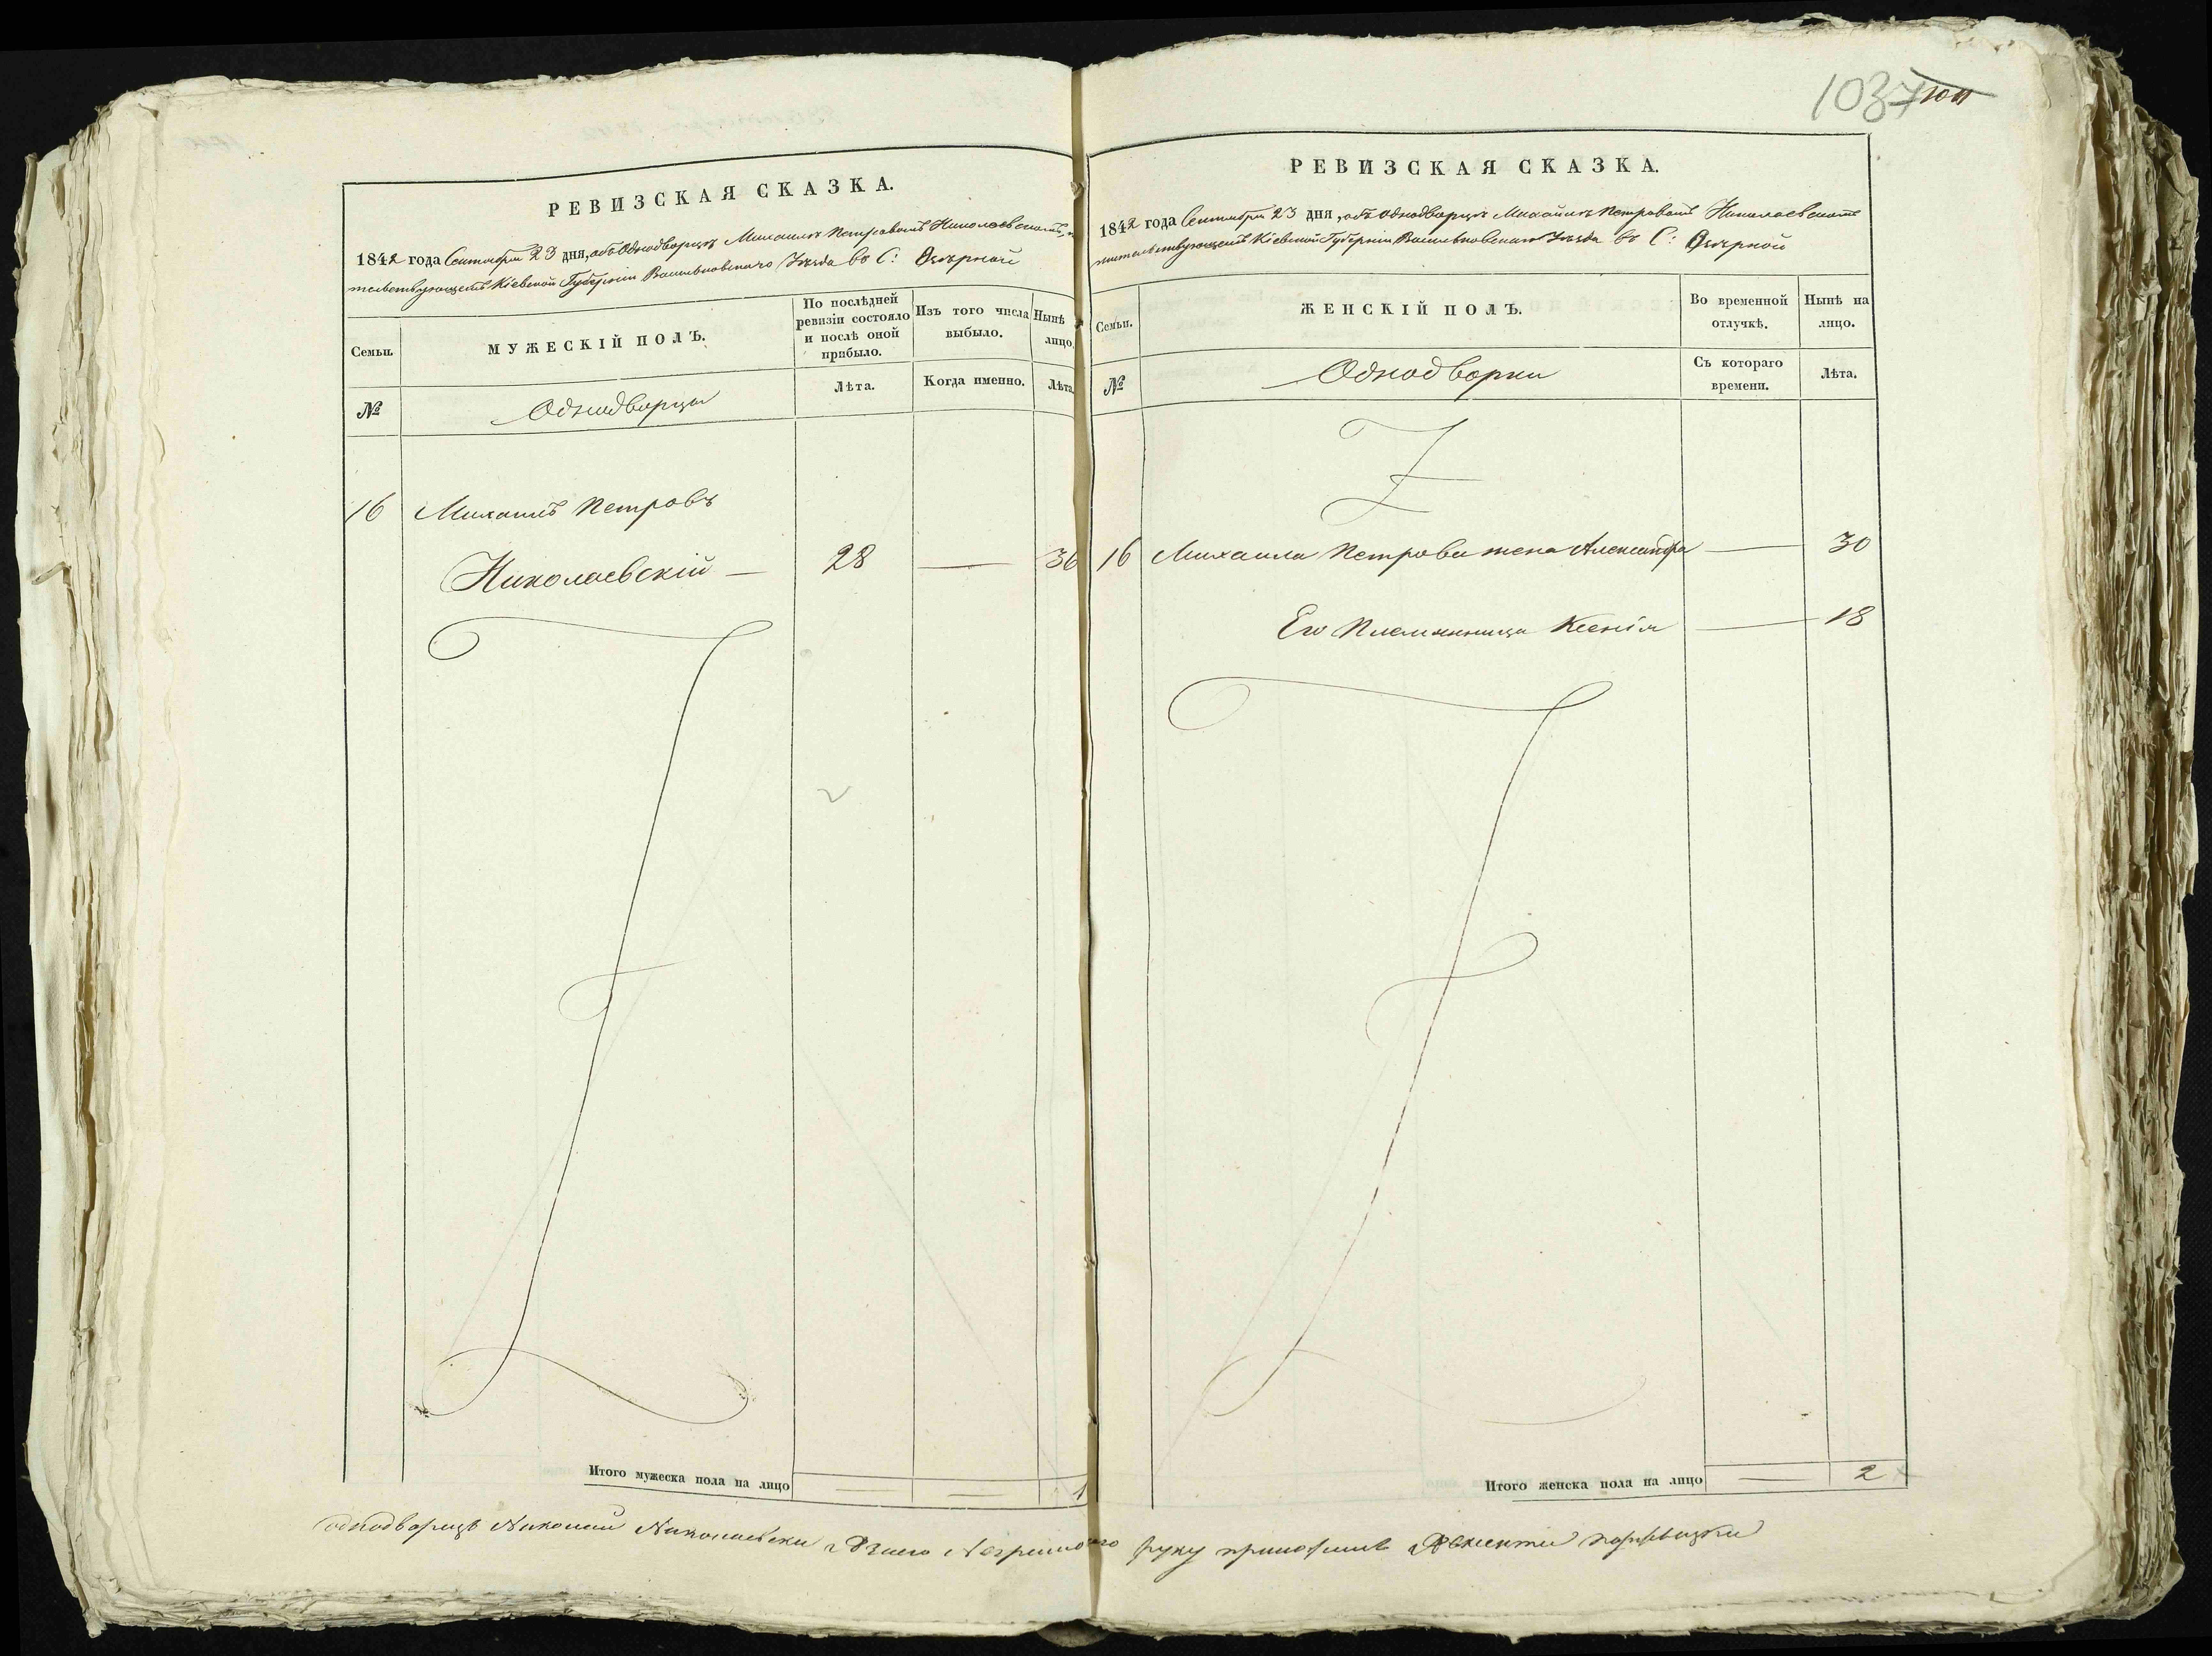 1037
РЕВИЗСКАЯ СКАЗКА.
1842 года Сентября 23 дня, объ Однодворцѣ Михаилѣ Петровомъ Николаевскомъ, жи
тельствующемъ Кіевской Губерніи Васильковскаго Уѣзда въ С: Озѣрной
Семьи.
МУЖЕСКІЙ ПОЛЪ.
По послѣдней
ревизіи состояло
и послѣ оной
прибыло.
Изъ того числа
выбыло.
Нынѣ
лицо.
№
Однодворцы
Лѣта.
Когда именно.
Лѣта
16 Михаилъ Петровъ
Николаевскій — 28 — 36
Итого мужеска пола на лицо — — 1
РЕВИЗСКАЯ СКАЗКА.
1842 года Сентября 23 дня, объ Однодворцѣ Михаилѣ Петровомъ Николаевскомъ
жительствующемъ Кіевской Губерніи Васильковскаго Уѣзда въ С: Озѣрной
Семьи.
ЖЕНСКІЙ ПОЛЪ.
Во временной
отлучкѣ.
Нынѣ на
лицо.
№
Однодворки
Съ котораго
времени.
Лѣта.
16 Михаила Петрова жена Александра — 30
Его Племянница Ксенія — 18
Итого женска пола на лицо — 2
однодворецъ Николаевски руку приложилъ